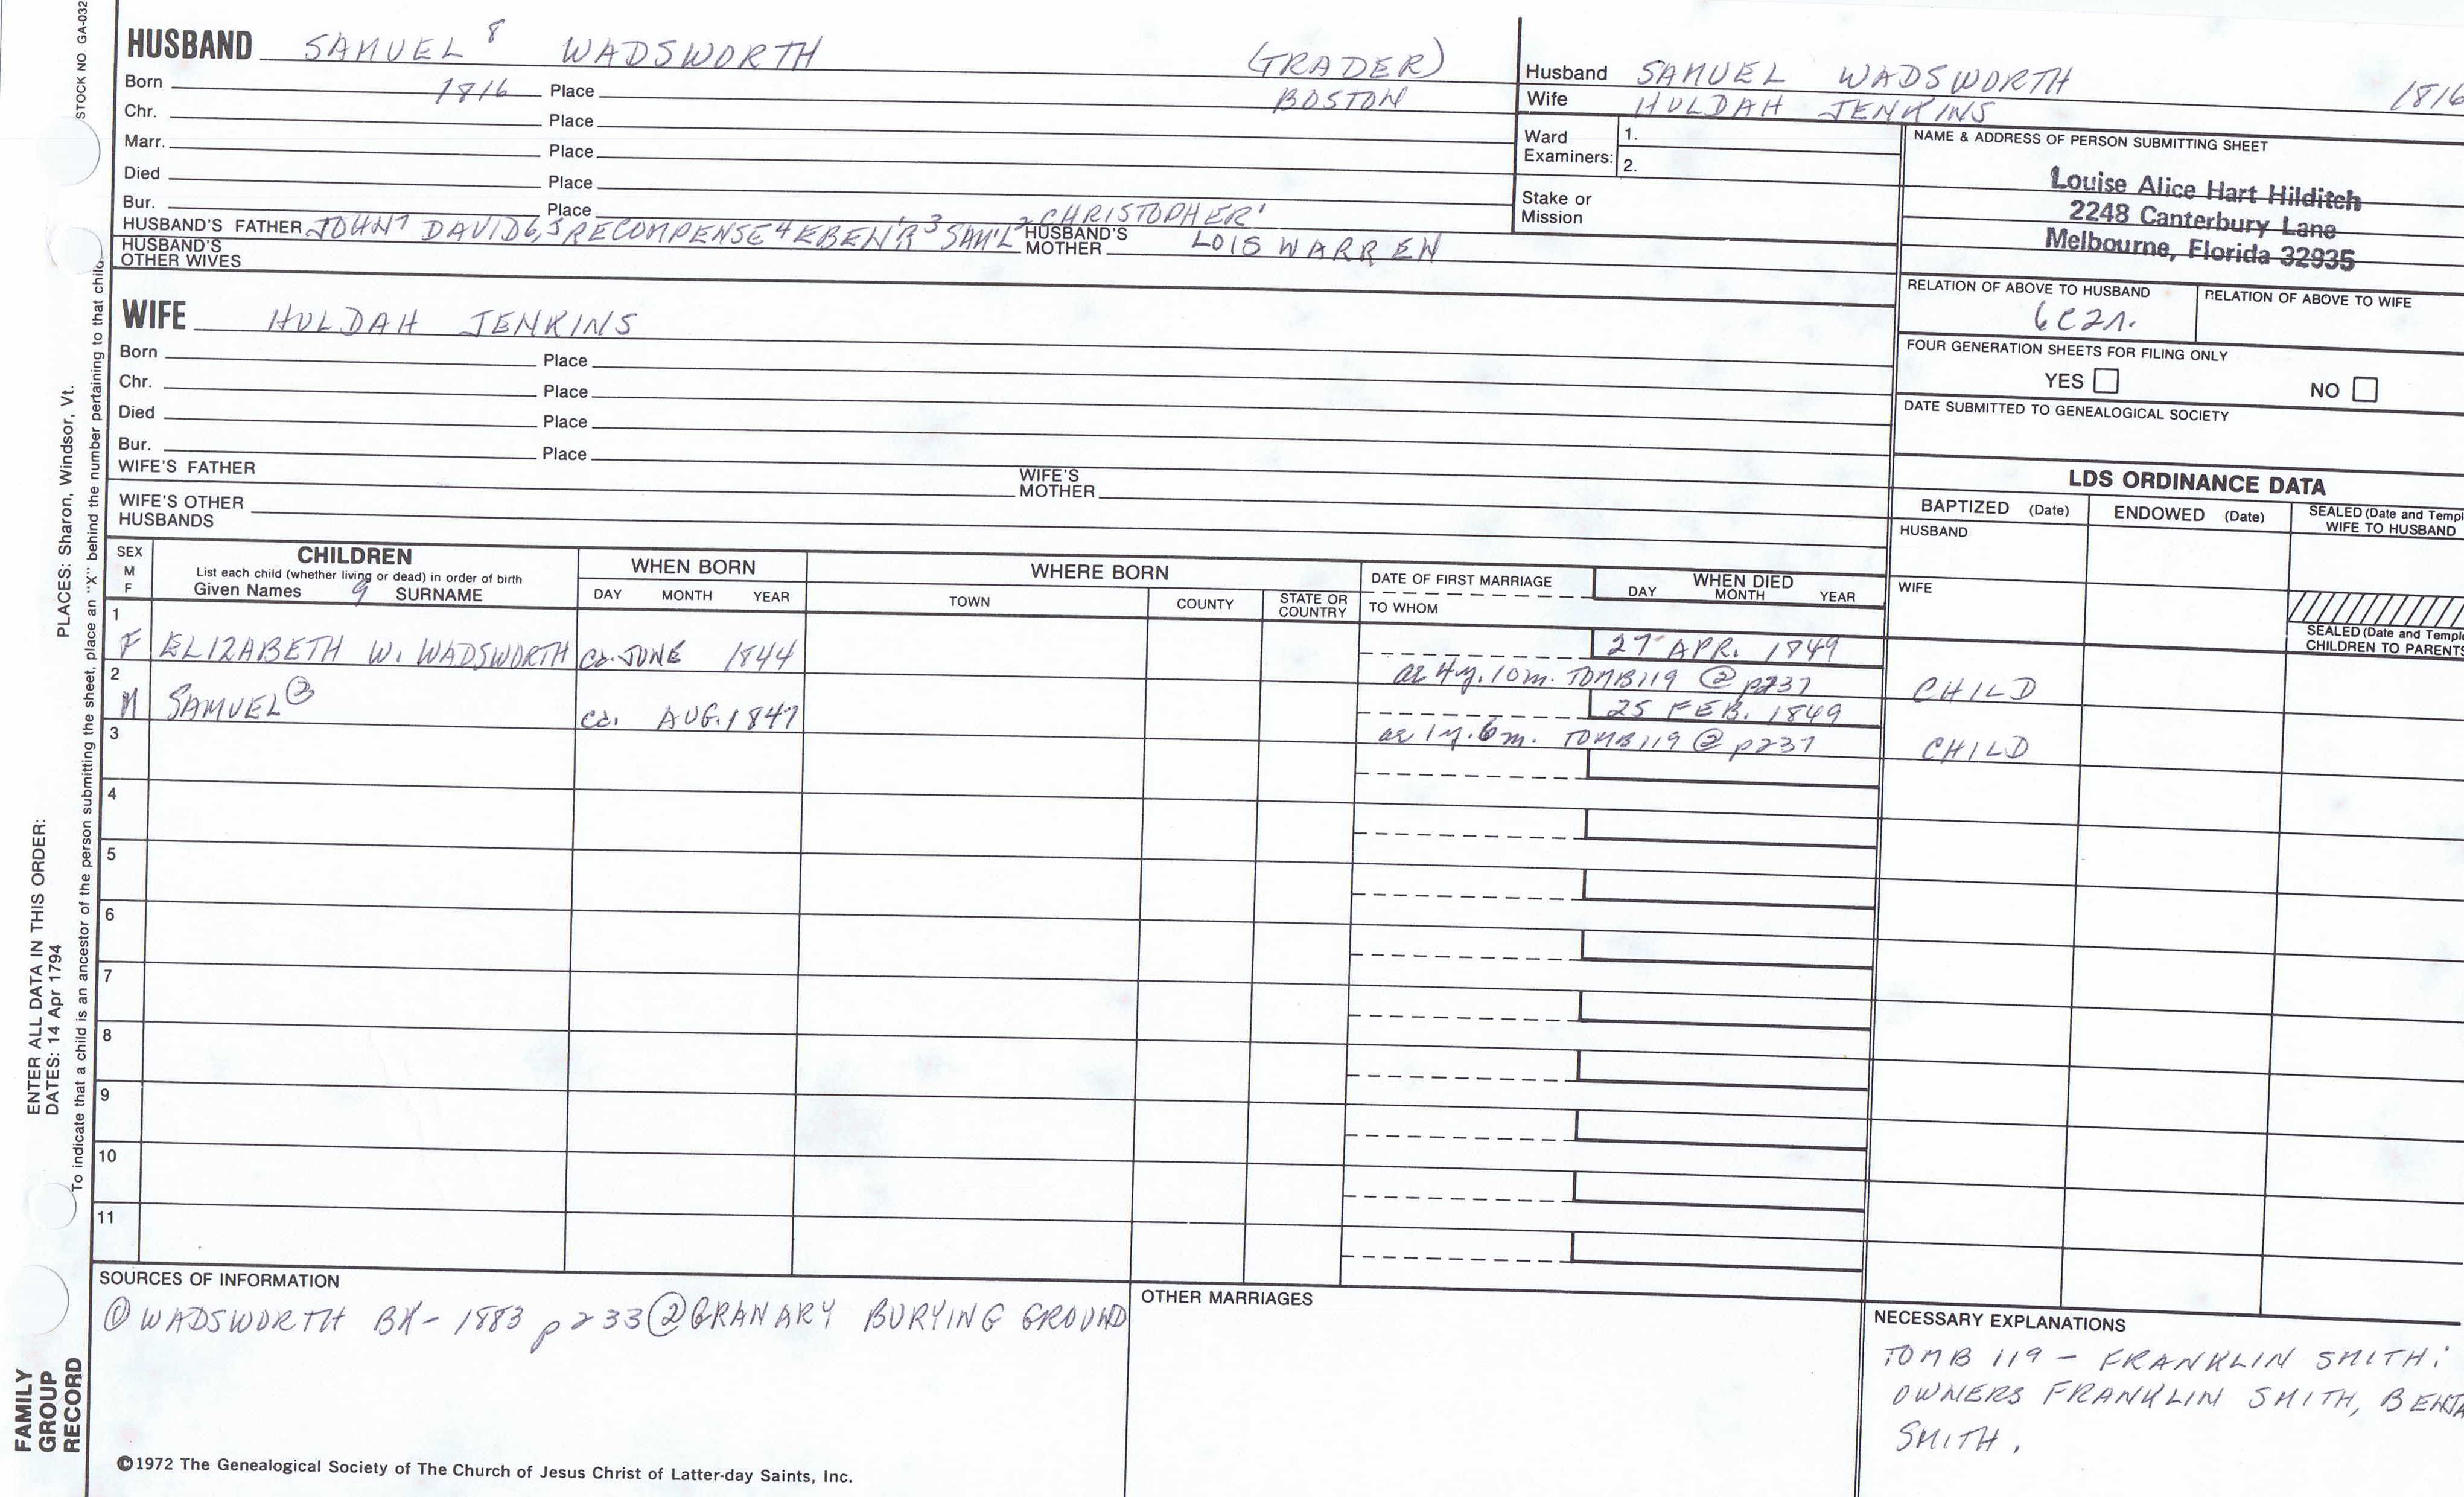 STOCK NO. GA-032
HUSBAND SAMUEL 8 WADSWORTH (TRADER)
Born 1816 Place BOSTON
Chr. Place
Marr. Place
Died Place
Bur. Place
HUSBAND'S FATHER JOHN7 DAVID6,5 RECOMPENSE4 EBEN'R3 SAM'L2 CHRISTOPHER1 HUSBAND'S MOTHER LOIS WARREN
HUSBAND'S OTHER WIVES
WIFE HULDAH JENKINS
Born Place
Chr. Place
Died Place
Bur. Place
WIFE'S FATHER WIFE'S MOTHER
WIFE'S OTHER HUSBANDS
Husband SAMUEL WADSWORTH 1816
Wife HULDAH JENKINS
Ward Examiners: 1.
2.
Stake or Mission
NAME & ADDRESS OF PERSON SUBMITTING SHEET
Louise Alice Hart Hilditch
2248 Canterbury Lane
Melbourne, Florida 32935
RELATION OF ABOVE TO HUSBAND RELATION OF ABOVE TO WIFE
6c2r.
FOUR GENERATION SHEETS FOR FILING ONLY
YES NO
DATE SUBMITTED TO GENEALOGICAL SOCIETY
LDS ORDINANCE DATA
BAPTIZED (Date) ENDOWED (Date) SEALED (Date and Templ
WIFE TO HUSBAND
HUSBAND
WIFE
SEALED (Date and Temple
CHILDREN TO PARENTS
SEX M F
CHILDREN
List each child (whether living or dead) in order of birth
Given Names 9 SURNAME
WHEN BORN
DAY MONTH YEAR
WHERE BORN
TOWN COUNTY STATE OR COUNTRY
DATE OF FIRST MARRIAGE
TO WHOM
WHEN DIED
DAY MONTH YEAR
1
F ELIZABETH W. WADSWORTH ca. JUNE 1844 27 APR. 1849
ae 4y. 10m. TOMB 119 ② p237 CHILD
2
M SAMUEL ② ca. AUG. 1847 25 FEB. 1849
ae 1y. 6m. TOMB 119 ② p237 CHILD
3
4
5
6
7
8
9
10
11
SOURCES OF INFORMATION
① WADSWORTH BK - 1883 p 233 ② GRANARY BURYING GROUND
OTHER MARRIAGES
NECESSARY EXPLANATIONS
TOMB 119 - FRANKLIN SMITH:
OWNERS FRANKLIN SMITH, BENJA
SMITH.
©1972 The Genealogical Society of The Church of Jesus Christ of Latter-day Saints, Inc.
FAMILY
GROUP
RECORD
ENTER ALL DATA IN THIS ORDER:
DATES: 14 Apr 1794
PLACES: Sharon, Windsor, Vt.
To indicate that a child is an ancestor of the person submitting the sheet, place an "X" behind the number pertaining to that child.